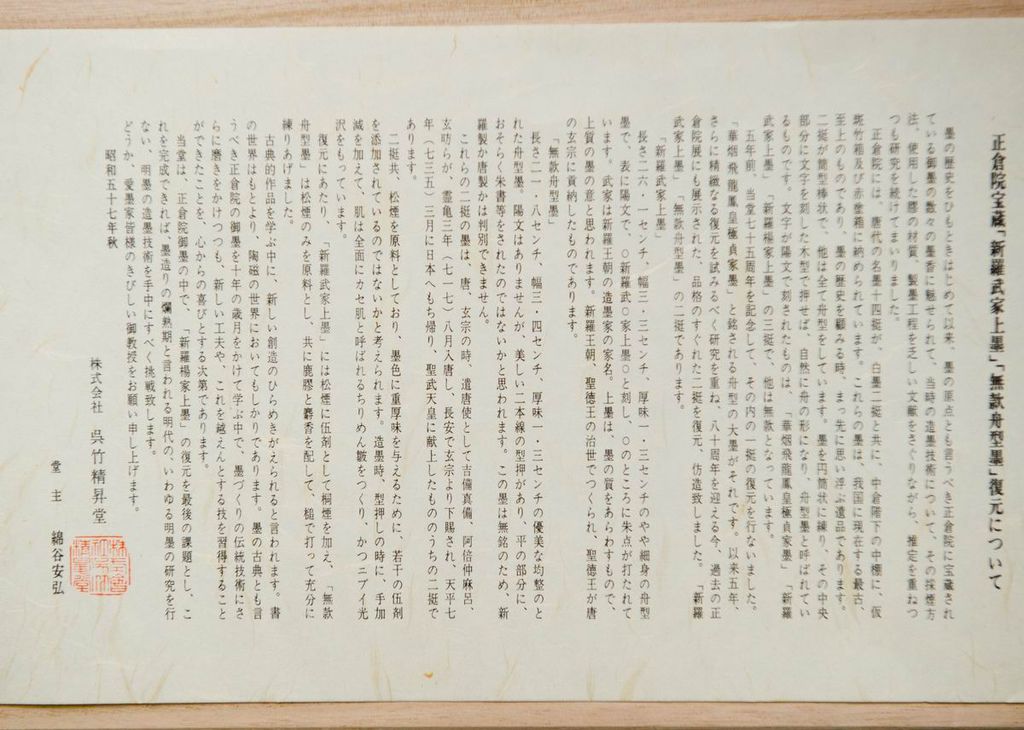 正倉院宝蔵「新羅武家上墨」「無款舟型墨」復元について
墨の歴史をひもときはじめて以来、墨の原点とも言うべき正倉院に宝蔵され
ている御墨の数々の墨香に魅せられて、当時の造墨技術について、その採煙方
法、使用した膠の材質、製墨工程を乏しい文献をさぐりながら、推定を重ねつ
つも研究を続けてまいりました。
正倉院には、唐代の名墨十四挺が、白墨二挺と共に、中倉階下の中棚に、仮
斑竹箱及び赤漆箱に納められています。これらの墨は、我国に現在する最古、
至上のものであり、墨の歴史を顧みる時、まっ先に思い浮ぶ遺品であります。
二挺が筒型棒状で、他は全て舟型をしています。墨を円筒状に練り、その中央
部分に文字を刻した木型で押せば、自然に舟の形になり、舟型墨と呼ばれてい
るものです。文字が陽文で刻されたものは、「華烟飛龍鳳皇極貞家墨」「新羅
武家上墨」「新羅楊家上墨」の三挺で、他は無款となっています。
五年前、当堂七十五周年を記念して、その内の一挺の復元を行ないました。
「華烟飛龍鳳皇極貞家墨」と銘される舟型の大墨がそれです。以来五年、
さらに精緻なる復元を試みるべく研究を重ね、八十周年を迎える今、過去の正
倉院展にも展示された、品格のすぐれた二挺を復元、仿造致しました。「新羅
武家上墨」「無款舟型墨」の二挺であります。
「新羅武家上墨」
長さ二六・一センチ、幅三・三センチ、厚味一・三センチのやや細身の舟型
墨で、表に陽文で、〇新羅武〇家上墨〇と刻し、〇のところに朱点が打たれて
います。武家は新羅王朝の造墨家の家名。上墨は、墨の質をあらわすもので、
上質の墨の意と思われます。新羅王朝、聖徳王の治世でつくられ、聖徳王が唐
の玄宗に貢納したものであります。
「無款舟型墨」
長さ二一・八センチ、幅三・四センチ、厚味一・三センチの優美な均整のと
れた舟型墨。陽文はありませんが、美しい二本線の型押があり、平の部分に、
おそらく朱書等をされたのではないかと思われます。この墨は無銘のため、新
羅製か唐製かは判別できません。
これらの二挺の墨は、唐、玄宗の時、遣唐使として吉備真備、阿倍仲麻呂、
玄昉らが、霊亀三年（七一七）八月入唐し、長安で玄宗より下賜され、天平七
年（七三五）三月に日本へもち帰り、聖武天皇に献上したもののうちの二挺で
あります。
二挺共、松煙を原料としており、墨色に重厚味を与えるために、若干の伍剤
を添加されているのではないかと考えられます。造墨時、型押しの時に、手加
減を加えて、肌は全面にカセ肌と呼ばれるちりめん皺をつくり、かつニブイ光
沢をもっています。
復元にあたり、「新羅武家上墨」には松煙に伍剤として桐煙を加え、「無款
舟型墨」は松煙のみを原料とし、共に鹿膠と麝香を配して、槌で打って充分に
練りあげました。
古典的作品を学ぶ中に、新しい創造のひらめきがえられると言われます。書
の世界はもとより、陶磁の世界においてもしかりであります。墨の古典とも言
うべき正倉院の御墨を十年の歳月をかけて学ぶ中で、墨づくりの伝統技術にさ
らに磨きをかけつつも、新しい工夫や、これを越えんとする技を習得すること
ができたことを、心からの喜びとする次第であります。
当堂は、正倉院御墨の中で、「新羅楊家上墨」の復元を最後の課題とし、こ
れを完成できれば、墨造りの爛熟期と言われる明代の、いわゆる明墨の研究を行
ない、明墨の造墨技術を手中にすべく挑戦致します。
どうか、愛墨家皆様のきびしい御教授をお願い申し上げます。
昭和五十七年秋
株式会社 呉竹精昇堂
堂主 綿谷安弘